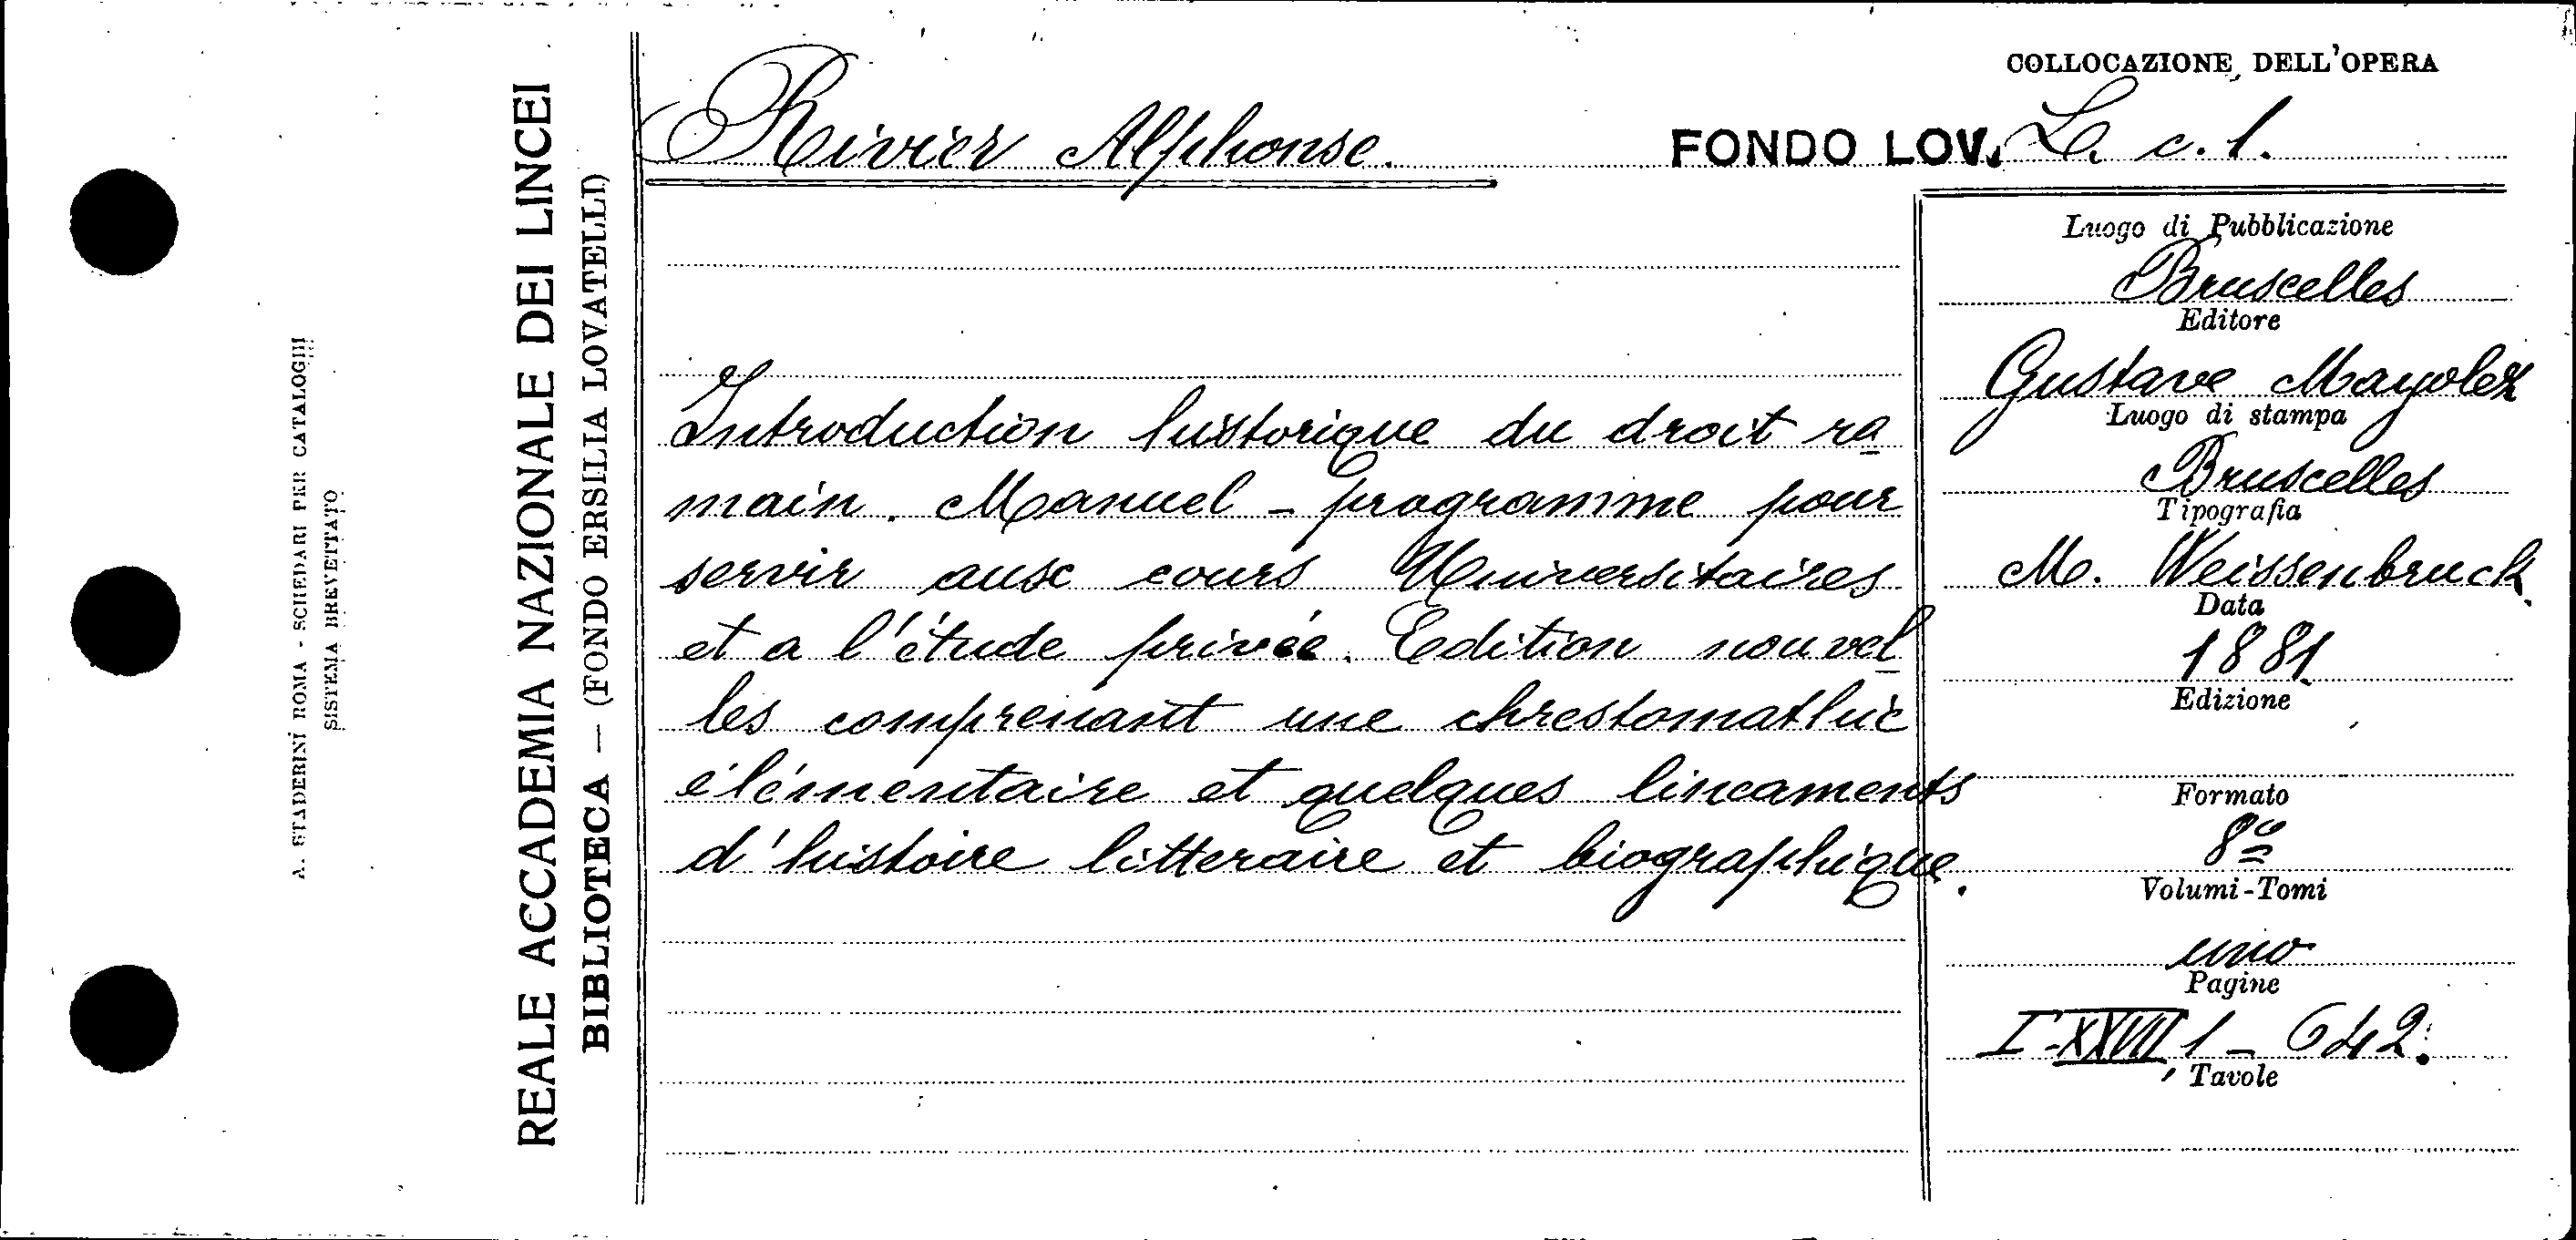 COLLOCAZIONE DELL'OPERA
Rivier Alphonse. FONDO LOV. L. c. 1.
Introduction historique du droit ro
main. Manuel - programme pour
servir aux cours Universitaires
et a l'étude privée. Edition nouvel
les comprenant une chrestomathie
élémentaire et quelques lineaments
d'histoire litteraire et biographique.
Luogo di Pubblicazione
Bruxelles
Editore
Gustave Mayolez
Luogo di stampa
Bruxelles
Tipografia
M. Weissenbruck
Data
1881
Edizione
Formato
8º
Volumi-Tomi
uno
Pagine
I-XXVII, 1 - 642.
Tavole
REALE ACCADEMIA NAZIONALE DEI LINCEI
BIBLIOTECA — (FONDO ERSILIA LOVATELLI)
A. STADERINI ROMA - SCHEDARI PER CATALOGHI
SISTEMA BREVETTATO